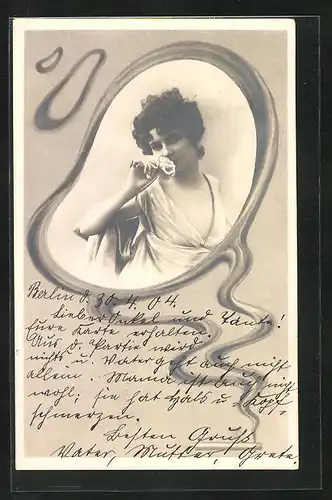 Berlin d. 30.4.04.
Lieber Onkel und Tante!
Eure Karte erhalten.
Aus d. Partie wird
nichts u. Vater geht auch nicht
allein. Mama ist auch nicht
wohl; sie hat Hals u. Kopf-
schmerzen.
Besten Gruß
Vater, Mutter, Grete.